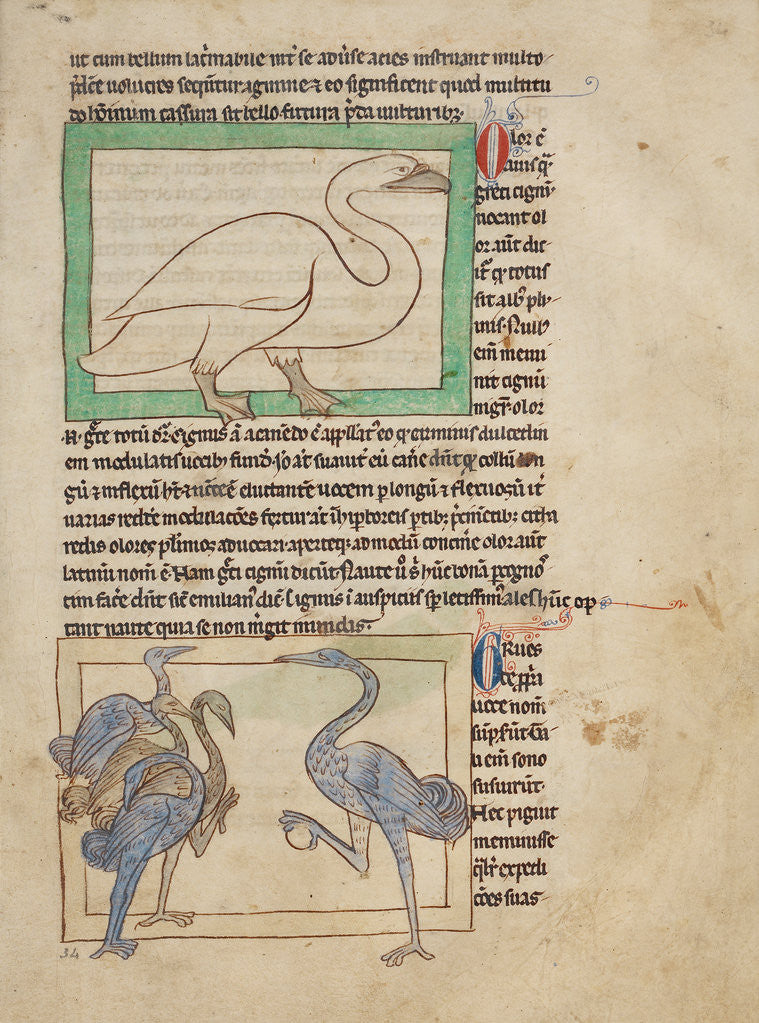 ut cum bellum lac̃mabile int̃ se adũse acies instruant multo-
pl̃ice uolucres secũtur agmine ⁊ eo significent quod multitu
do hõinum cassura sit bello futura p̃da uulturibꝫ
Olor ẽ
auis q̃
greci cignũ
uocant ol
or aũt dic-
it̃ ꝙ totus
sit albꝰ plu-
mis. Nullꝰ
em̃ memi
nit cignũ
nigr̃. olor
N. gr̃e totũ dr̃. Cignus ã a canẽdo ẽ appellatꝰ eo ꝙ carminis dulcedin
em modulatis uocibꝰ fund̃. Jõ aт̃ suauit̃ eũ canẽ dñt ꝙ collũ lon
gũ ⁊ inflexũ ht̃ ⁊ necẽe ẽ eluctantẽ uocem p longũ ⁊ flexuosũ it̃
uarias redde modulacões fertur aт̃ ĩ hiꝑboreis ꝑtibꝫ p̃cinẽtibꝫ citha
redis olores pl̃imos aduocari. aperteqꝫ admodũ concinẽ olor aũt
latinũ nom̃ ẽ. Nam gr̃ci cignũ dicũt Naute ũo s̃ hũc bonã ꝓgnoꝰ
tim facẽ dñt sic̃ emilianꝰ dic̃. Cignus ĩ auspiciis sꝑ letissimꝰ ales hũc op
tant naute quia se non m̃git in undis.
GRues
ꝓp̃ria
uoce nom̃
sũpsert̃ Ta
li em̃ sono
susurr̃t.
Hec pigrũt
meminisse
ql̃r expedi
cões suas-
34